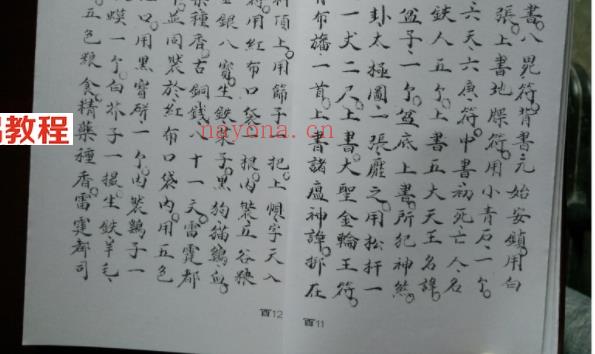 書。八毘符。背書元始安鎮。用白
張。上書地牒符。用小青石一个。
六天六庚符。中書初死亡人名
鉄人五个。上書五大天王名諱。
盆子一个。盆底上書所犯神煞。
卦太極圖一張。壓之。用松扦一
一犬二尺。上書大聖金輪王符。
布旛一首。上書諸瘟神諱。在
頂上用篩子一把。上字天入
符。用紅布口袋一根。内裝五谷粮
金銀八寶。生銀朱子。黑狗猫鷄血。
藥種香。古銅錢八十一文。雷霆都
並同裝於紅布口袋内。用五色
口。用黑寶一个。内裝鷄子一
蟆一个。白芥子一撮。生鉄。羊毛。
五色粮食。精藥種香。雷霆都司
百12
百11
教程
nayona.cn